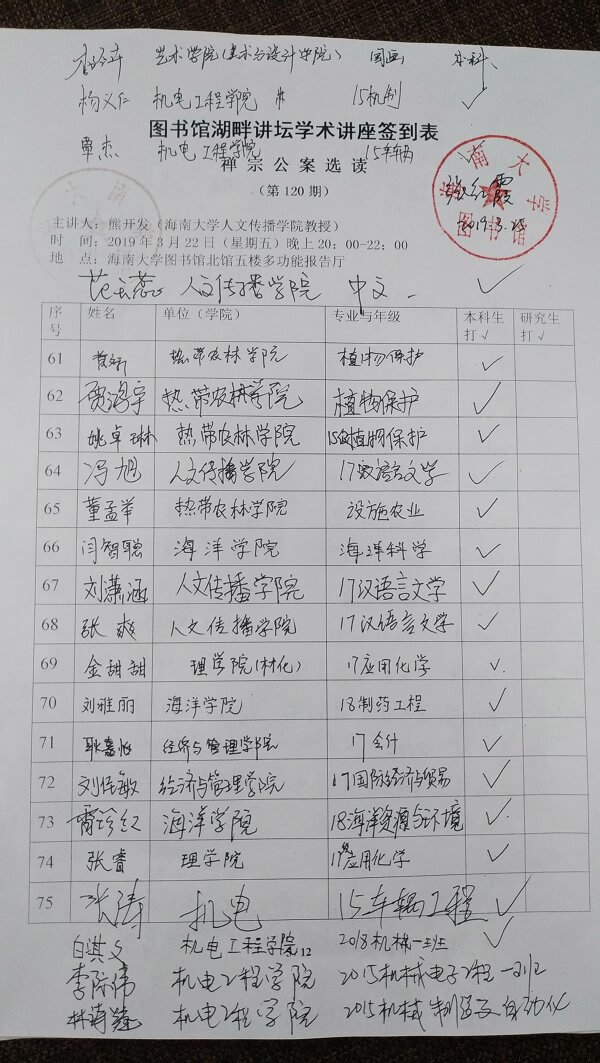 艺术学院(美术与设计学院) 国画 本科
杨义仁 机电工程学院 15机制 ✓
图书馆湖畔讲坛学术讲座签到表
覃杰 机电工程学院 15车辆
禅宗公案选读
(第 120 期)
海南大学
图书馆
2019.3.25
主讲人：熊开发（海南大学人文传播学院教授）
时 间：2019 年 3 月 22 日（星期五）晚上 20：00-22：00
地 点：海南大学图书馆北馆五楼多功能报告厅
人文传播学院 中文 ✓
序号 姓名 单位（学院） 专业与年级 本科生打√ 研究生打√
61 热带农林学院 植物保护 ✓
62 贾鸿宇 热带农林学院 植物保护 ✓
63 姚卓琳 热带农林学院 植物保护 ✓
64 冯旭 人文传播学院 17汉语言文学 ✓
65 董孟举 热带农林学院 设施农业 ✓
66 闫智聪 海洋学院 海洋科学 ✓
67 刘潇涵 人文传播学院 17汉语言文学 ✓
68 张爽 人文传播学院 17汉语言文学 ✓
69 金甜甜 理学院(材化) 17应用化学 ✓
70 刘雅丽 海洋学院 18制药工程 ✓
71 经济与管理学院 17会计 ✓
72 刘佳敏 经济与管理学院 17国际经济与贸易 ✓
73 海洋学院 18海洋资源与环境 ✓
74 张睿 理学院 应用化学 ✓
75 张涛 机电 15车辆工程 ✓
白淇文 机电工程学院 2018机械一班 ✓
12
李陈伟 机电工程学院 2015机械电子工程一班
机电工程学院 2015机械制造及自动化